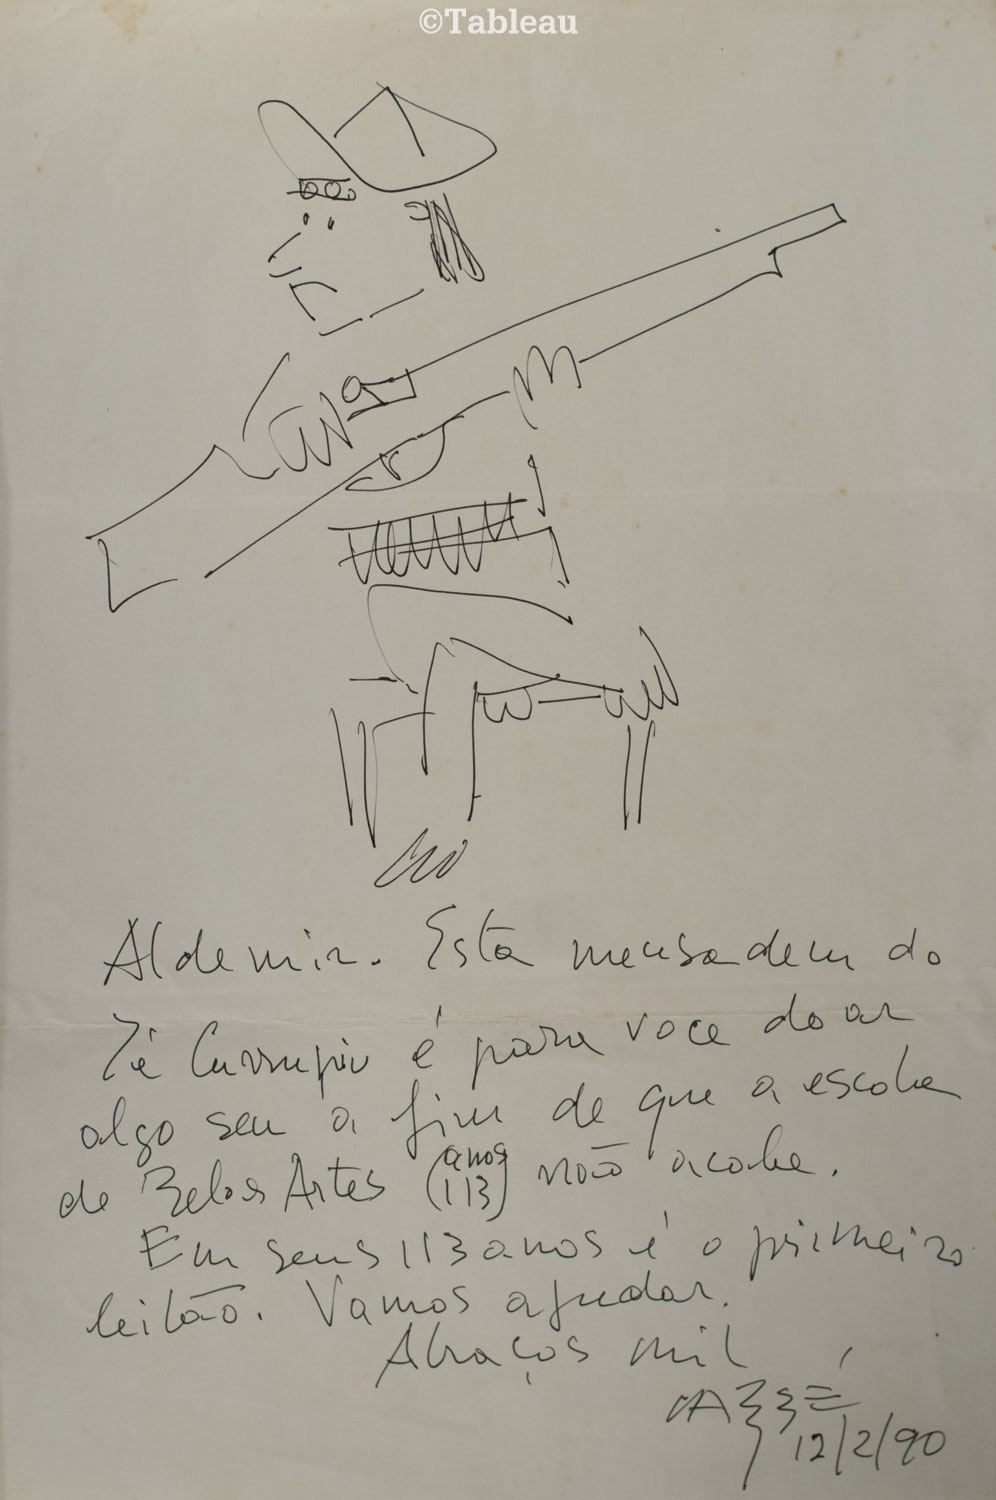 ©Tableau
Aldemir. Esta mensadem do
Zé Currupio é para voce doar
algo seu a fim de que a escola
de Belas Artes (113 anos) não acabe.
Em seus 113 anos é o primeiro
leilão. Vamos ajudar.
Abraços mil
12/2/90